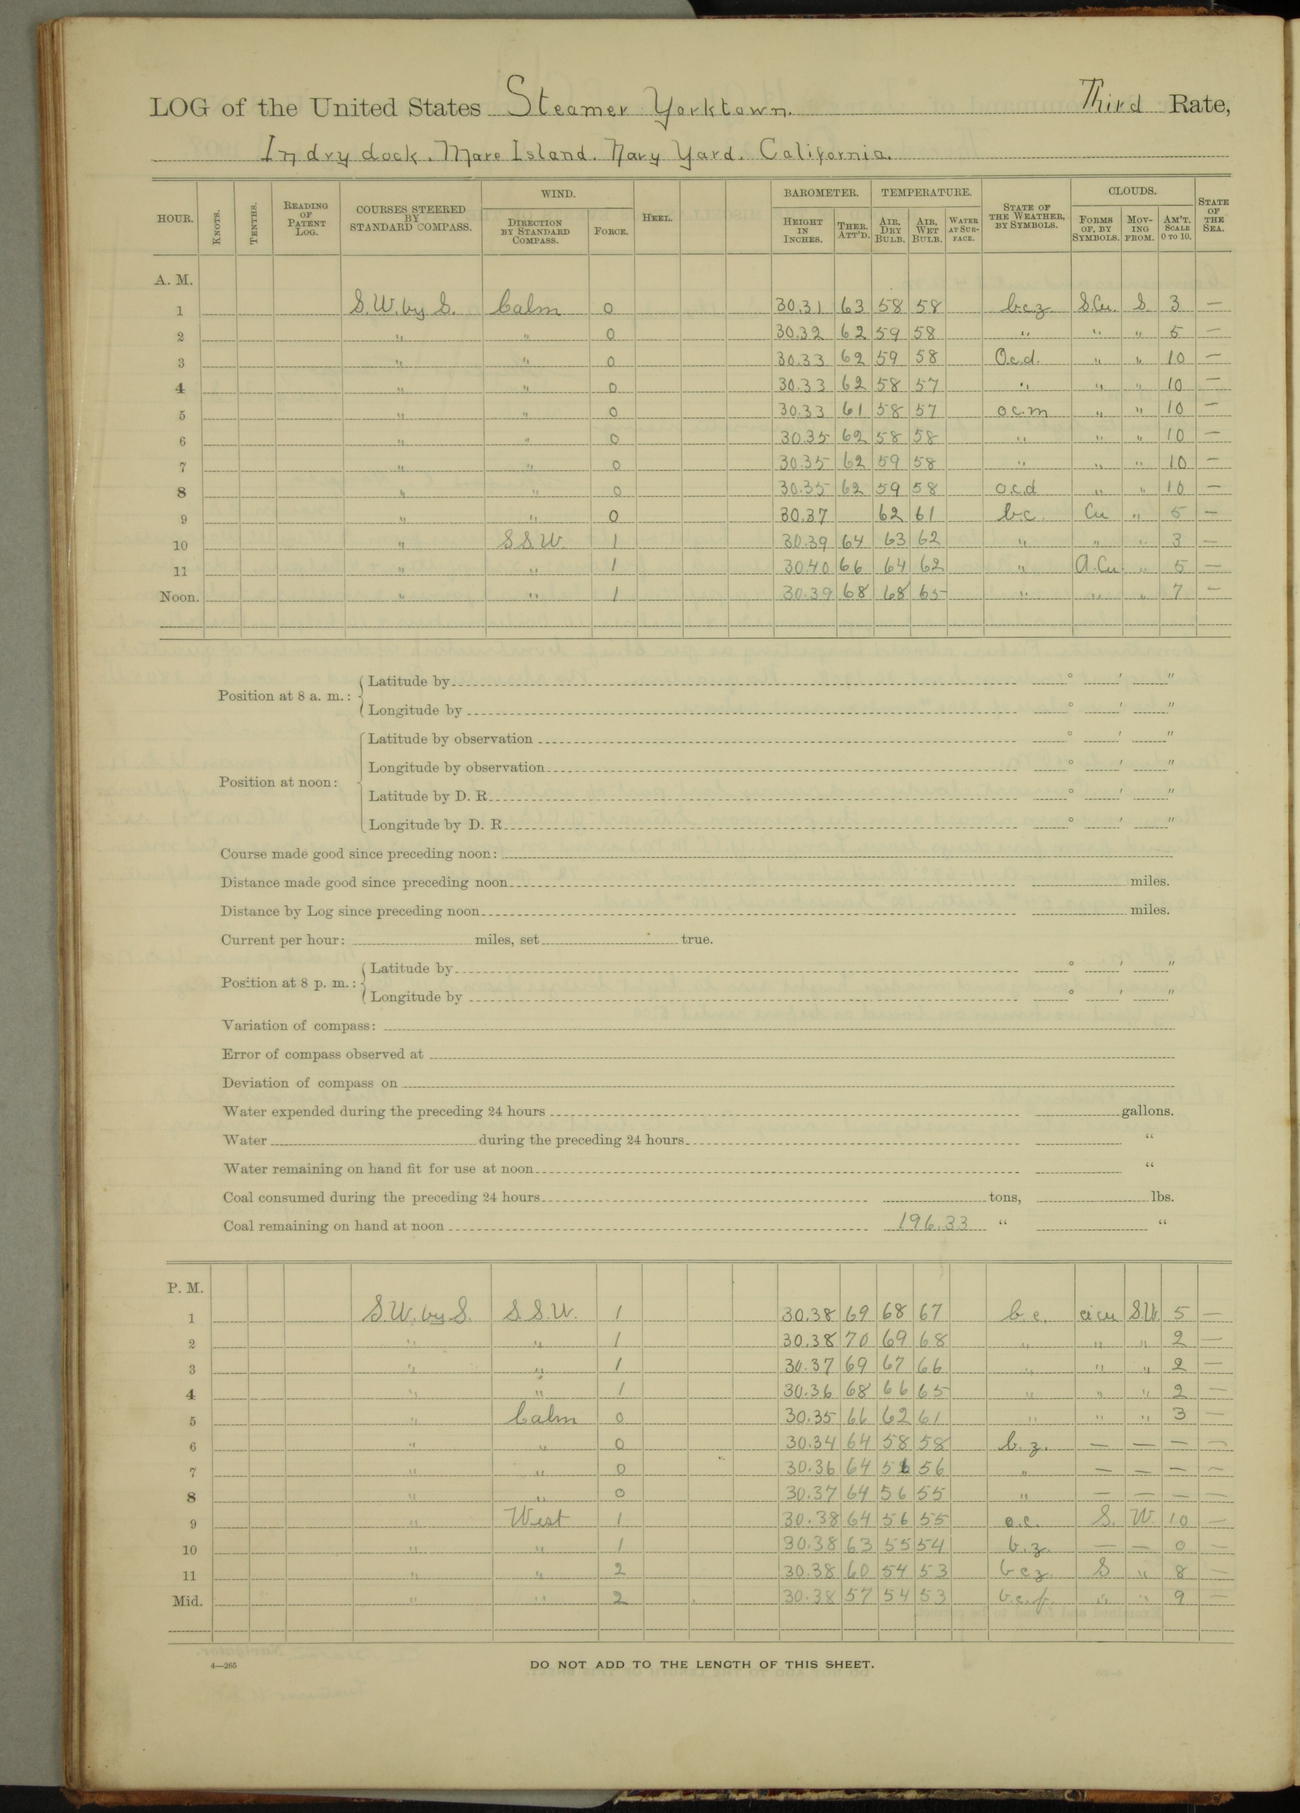 LOG of the United States Steamer Yorktown. Third Rate,
In dry dock. Mare Island. Navy Yard. California.
HOUR. KNOTS. TENTHS. READING OF PATENT LOG. COURSES STEERED BY STANDARD COMPASS. WIND. DIRECTION BY STANDARD COMPASS. FORCE. HEEL. BAROMETER. HEIGHT IN INCHES. THER. ATT'D. TEMPERATURE. AIR, DRY BULB. AIR, WET BULB. WATER AT SURFACE. STATE OF THE WEATHER, BY SYMBOLS. CLOUDS. FORMS OF, BY SYMBOLS. MOVING FROM. AM'T. SCALE 0 TO 10. STATE OF THE SEA.
A. M.
1 S.W. by S. Calm 0 30.31 63 58 58 b.c.z S.Cu. S. 3 —
2 " " 0 30.32 62 59 58 " " " 5 —
3 " " 0 30.33 62 59 58 O.c.d. " " 10 —
4 " " 0 30.33 62 58 57 " " " 10 —
5 " " 0 30.33 61 58 57 o.c.m " " 10 —
6 " " 0 30.35 62 58 58 " " " 10 —
7 " " 0 30.35 62 59 58 " " " 10 —
8 " " 0 30.35 62 59 58 o.c.d " " 10 —
9 " " 0 30.37 62 61 b.c. Cu " 5 —
10 " S.S.W. 1 30.39 64 63 62 " " " 3 —
11 " " 1 30.40 66 64 62 " A.Cu " 5 —
Noon. " " 1 30.39 68 68 65 " " " 7 —
Position at 8 a. m.: Latitude by ° ' "
Longitude by ° ' "
Position at noon: Latitude by observation ° ' "
Longitude by observation ° ' "
Latitude by D. R. ° ' "
Longitude by D. R. ° ' "
Course made good since preceding noon:
Distance made good since preceding noon miles.
Distance by Log since preceding noon miles.
Current per hour: miles, set true.
Position at 8 p. m.: Latitude by ° ' "
Longitude by ° ' "
Variation of compass:
Error of compass observed at
Deviation of compass on
Water expended during the preceding 24 hours gallons.
Water during the preceding 24 hours "
Water remaining on hand fit for use at noon "
Coal consumed during the preceding 24 hours tons, lbs.
Coal remaining on hand at noon 196.33 " "
P. M.
1 S.W. by S. S.S.W. 1 30.38 69 68 67 b.c. ci cu S.W. 5 —
2 " " 1 30.38 70 69 68 " " " 2 —
3 " " 1 30.37 69 67 66 " " " 2 —
4 " " 1 30.36 68 66 65 " " " 2 —
5 " Calm 0 30.35 66 62 61 " " " 3 —
6 " " 0 30.34 64 58 58 b.z. — — — —
7 " " 0 30.36 64 56 56 " — — — —
8 " " 0 30.37 64 56 55 " — — — —
9 " West 1 30.38 64 56 55 o.c. S. W. 10 —
10 " " 1 30.38 63 55 54 b.z. — — 0 —
11 " " 2 30.38 60 54 53 b c z S " 8 —
Mid. " " 2 30.38 57 54 53 b.c.f. " " 9 —
4—265
DO NOT ADD TO THE LENGTH OF THIS SHEET.